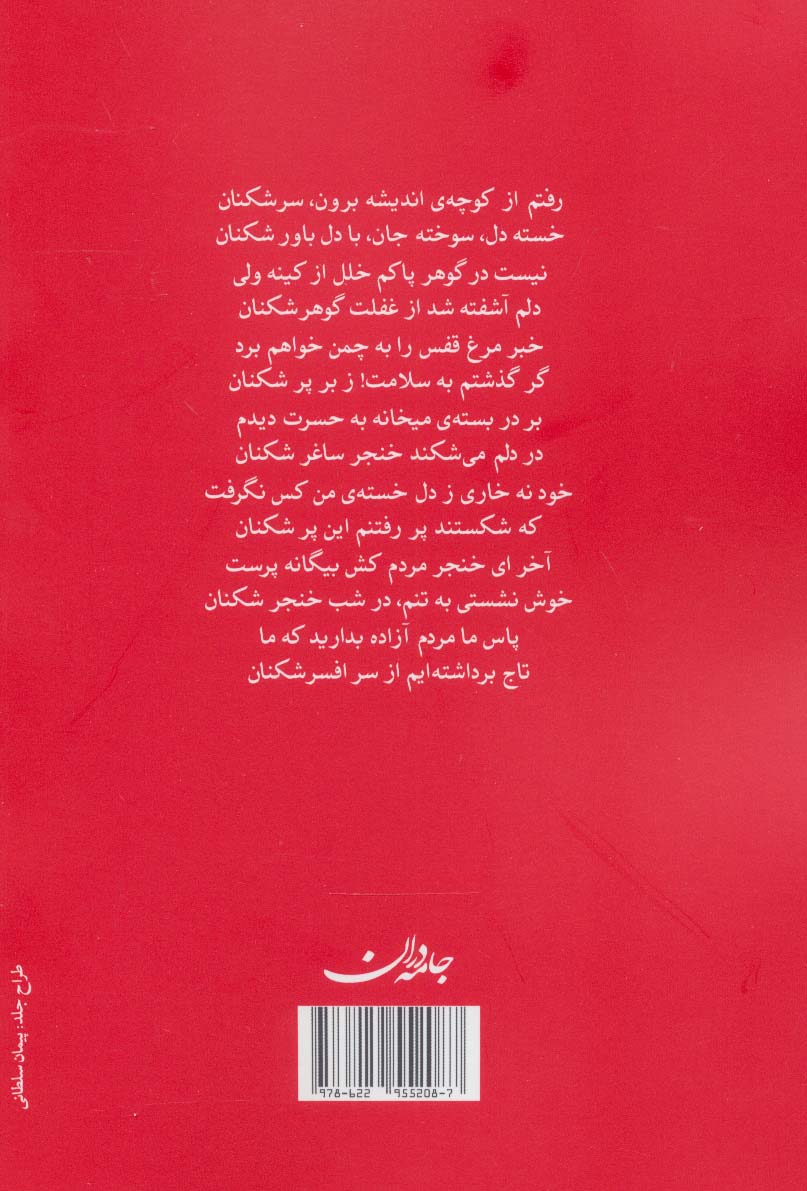 رفتم از کوچه‌ی اندیشه برون، سرشکنان
خسته دل، سوخته جان، با دل باور شکنان
نیست در گوهر پاکم خلل از کینه ولی
دلم آشفته شد از غفلت گوهرشکنان
خبر مرغ قفس را به چمن خواهم برد
گر گذشتم به سلامت! ز بر پر شکنان
بر در بسته‌ی میخانه به حسرت دیدم
در دلم می‌شکند خنجر ساغر شکنان
خود نه خاری ز دل خسته‌ی من کس نگرفت
که شکستند پر رفتنم این پر شکنان
آخر ای خنجر مردم کش بیگانه پرست
خوش نشستی به تنم، در شب خنجر شکنان
پاس ما مردم آزاده بدارید که ما
تاج برداشته‌ایم از سر افسرشکنان
جامه‌دران
978-622 955208-7
طراح جلد: پیمان سلطانی